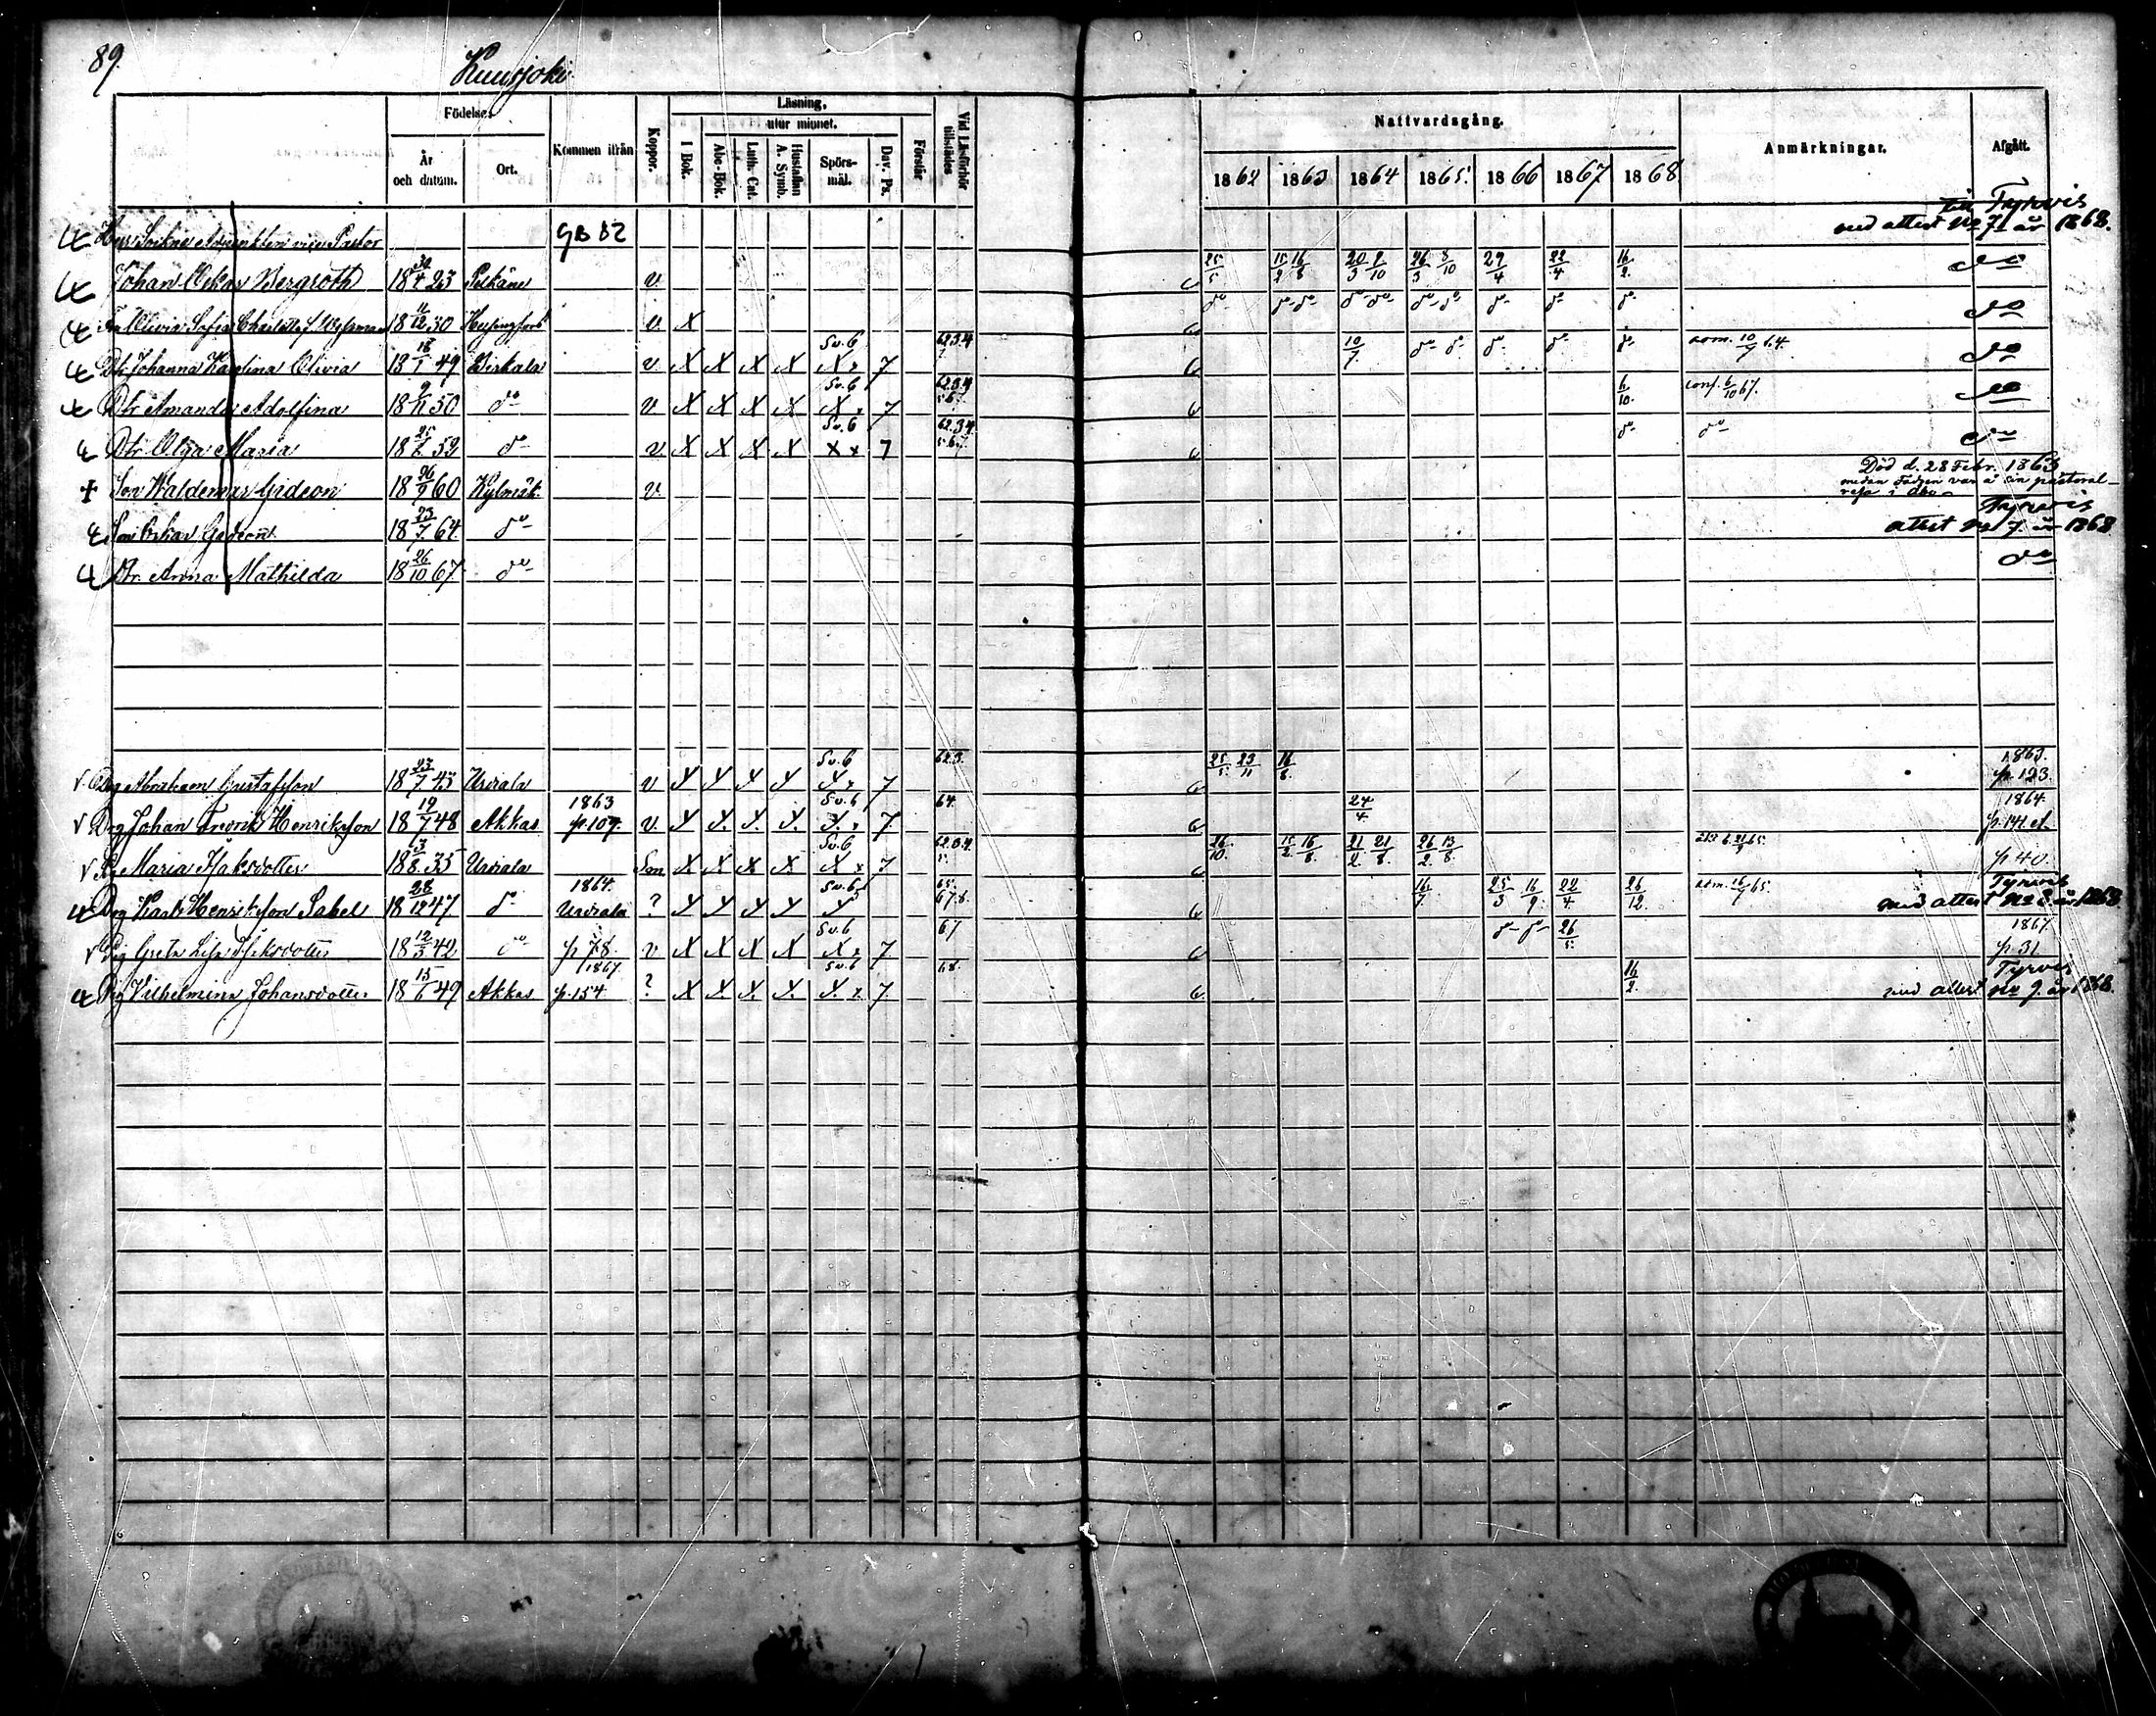 89.
Kuurjoki
Födelse-
Kommen ifrån
Koppor.
Läsning,
I Bok.
utur minnet.
Abc-Bok.
Luth. Cat.
Hustaflan A. Symb.
Spörs-mål.
Dav. Ps.
Förstår
Vid Läsförhör tillstädes
År och datum.
Ort.
Nattvardsgång.
1862 1863 1864 1865. 1866 1867 1868
Anmärkningar.
Afgått.
Herr Sockne Adjunkten vice Pastor GB 82 till Tyrvis med attest No 7 år 1868.
Johan Oskar Bergroth 18 30/4 23 Pelkäne v. 25/5 15/2 16/8 20/3 2/10 26/3 8/10 29/4 22/4 16/2 do
Fru Olivia Sofia Charlotta f. 18 11/12 30 Helsingfors v. X do do-do do-do do-do do do do do
Dtr Johanna Karolina Olivia 18 18/1 49 Birkala v X X X X Sv. 6 X x 7 62.3.4 10/7 do do do do do adm. 10/7 64. do
Dtr Amanda Adolfina 18 9/11 50 do v X X X X Sv. 6 X x 7 62.3.4 5.6.7. 6/10. conf. 6/10 67. do
Dtr Olga Maria 18 25/2 52 do v X X X X Sv. 6 X x 7 62.3.4. 5.6.7. do do do
Son Waldemar Gideon 18 26/9 60 Kylmäk. v. Död d. 28 Febr. 1863 medan fadren var å en pastoral-resa i Åbo
Son Oskar Gedeon 18 23/7 64. do Tyrvis attest No 7. år 1868
Dtr. Anna Mathilda 18 26/10 67 do do
Drg Abraham Gustafsson 18 23/7 43 Urdiala v X X X X Sv. 6 X x 7 62.3. 25/5 23/11 16/8 1863. p. 123.
Drg Johan Fredrik Henriksson 18 19/7 48 Akkas 1863 p. 107. v. X X. X. X. Sv. 6 X. x 7. 64. 24/4. 1864. p. 141.
Pig Maria Isaksdotter 18 3/8. 35 Urdiala Son X X X X Sv. 6 X x 7 62.3.4. 5. 26/10. 15/2 16/8 21/2. 21/8. 26/2. 13/8. p 40.
Drg Henriksson Sabel 18 28/12 47 do 1864. Urdiala ? X X X X Sv. 6 X 65. 67.8. 16/7. 25/3 16/9 22/4. 26/12. adm. 16/7 65. Tyrvis med attest No 8 år 1868.
Pig Greta Lisa Isaksdotter 18 12/5 42 do p 78. v X X X X Sv. 6 X x 7 67 do-do- 26/5. 1867. p. 31.
Pig Vilhelmina Johansdotter 18 15/6 49 Akkas 1867. p. 154 ? X X. X. X. Sv. 6 X. x. 7. 68. 16/2. Tyrvis med attest No 9. år 1868.